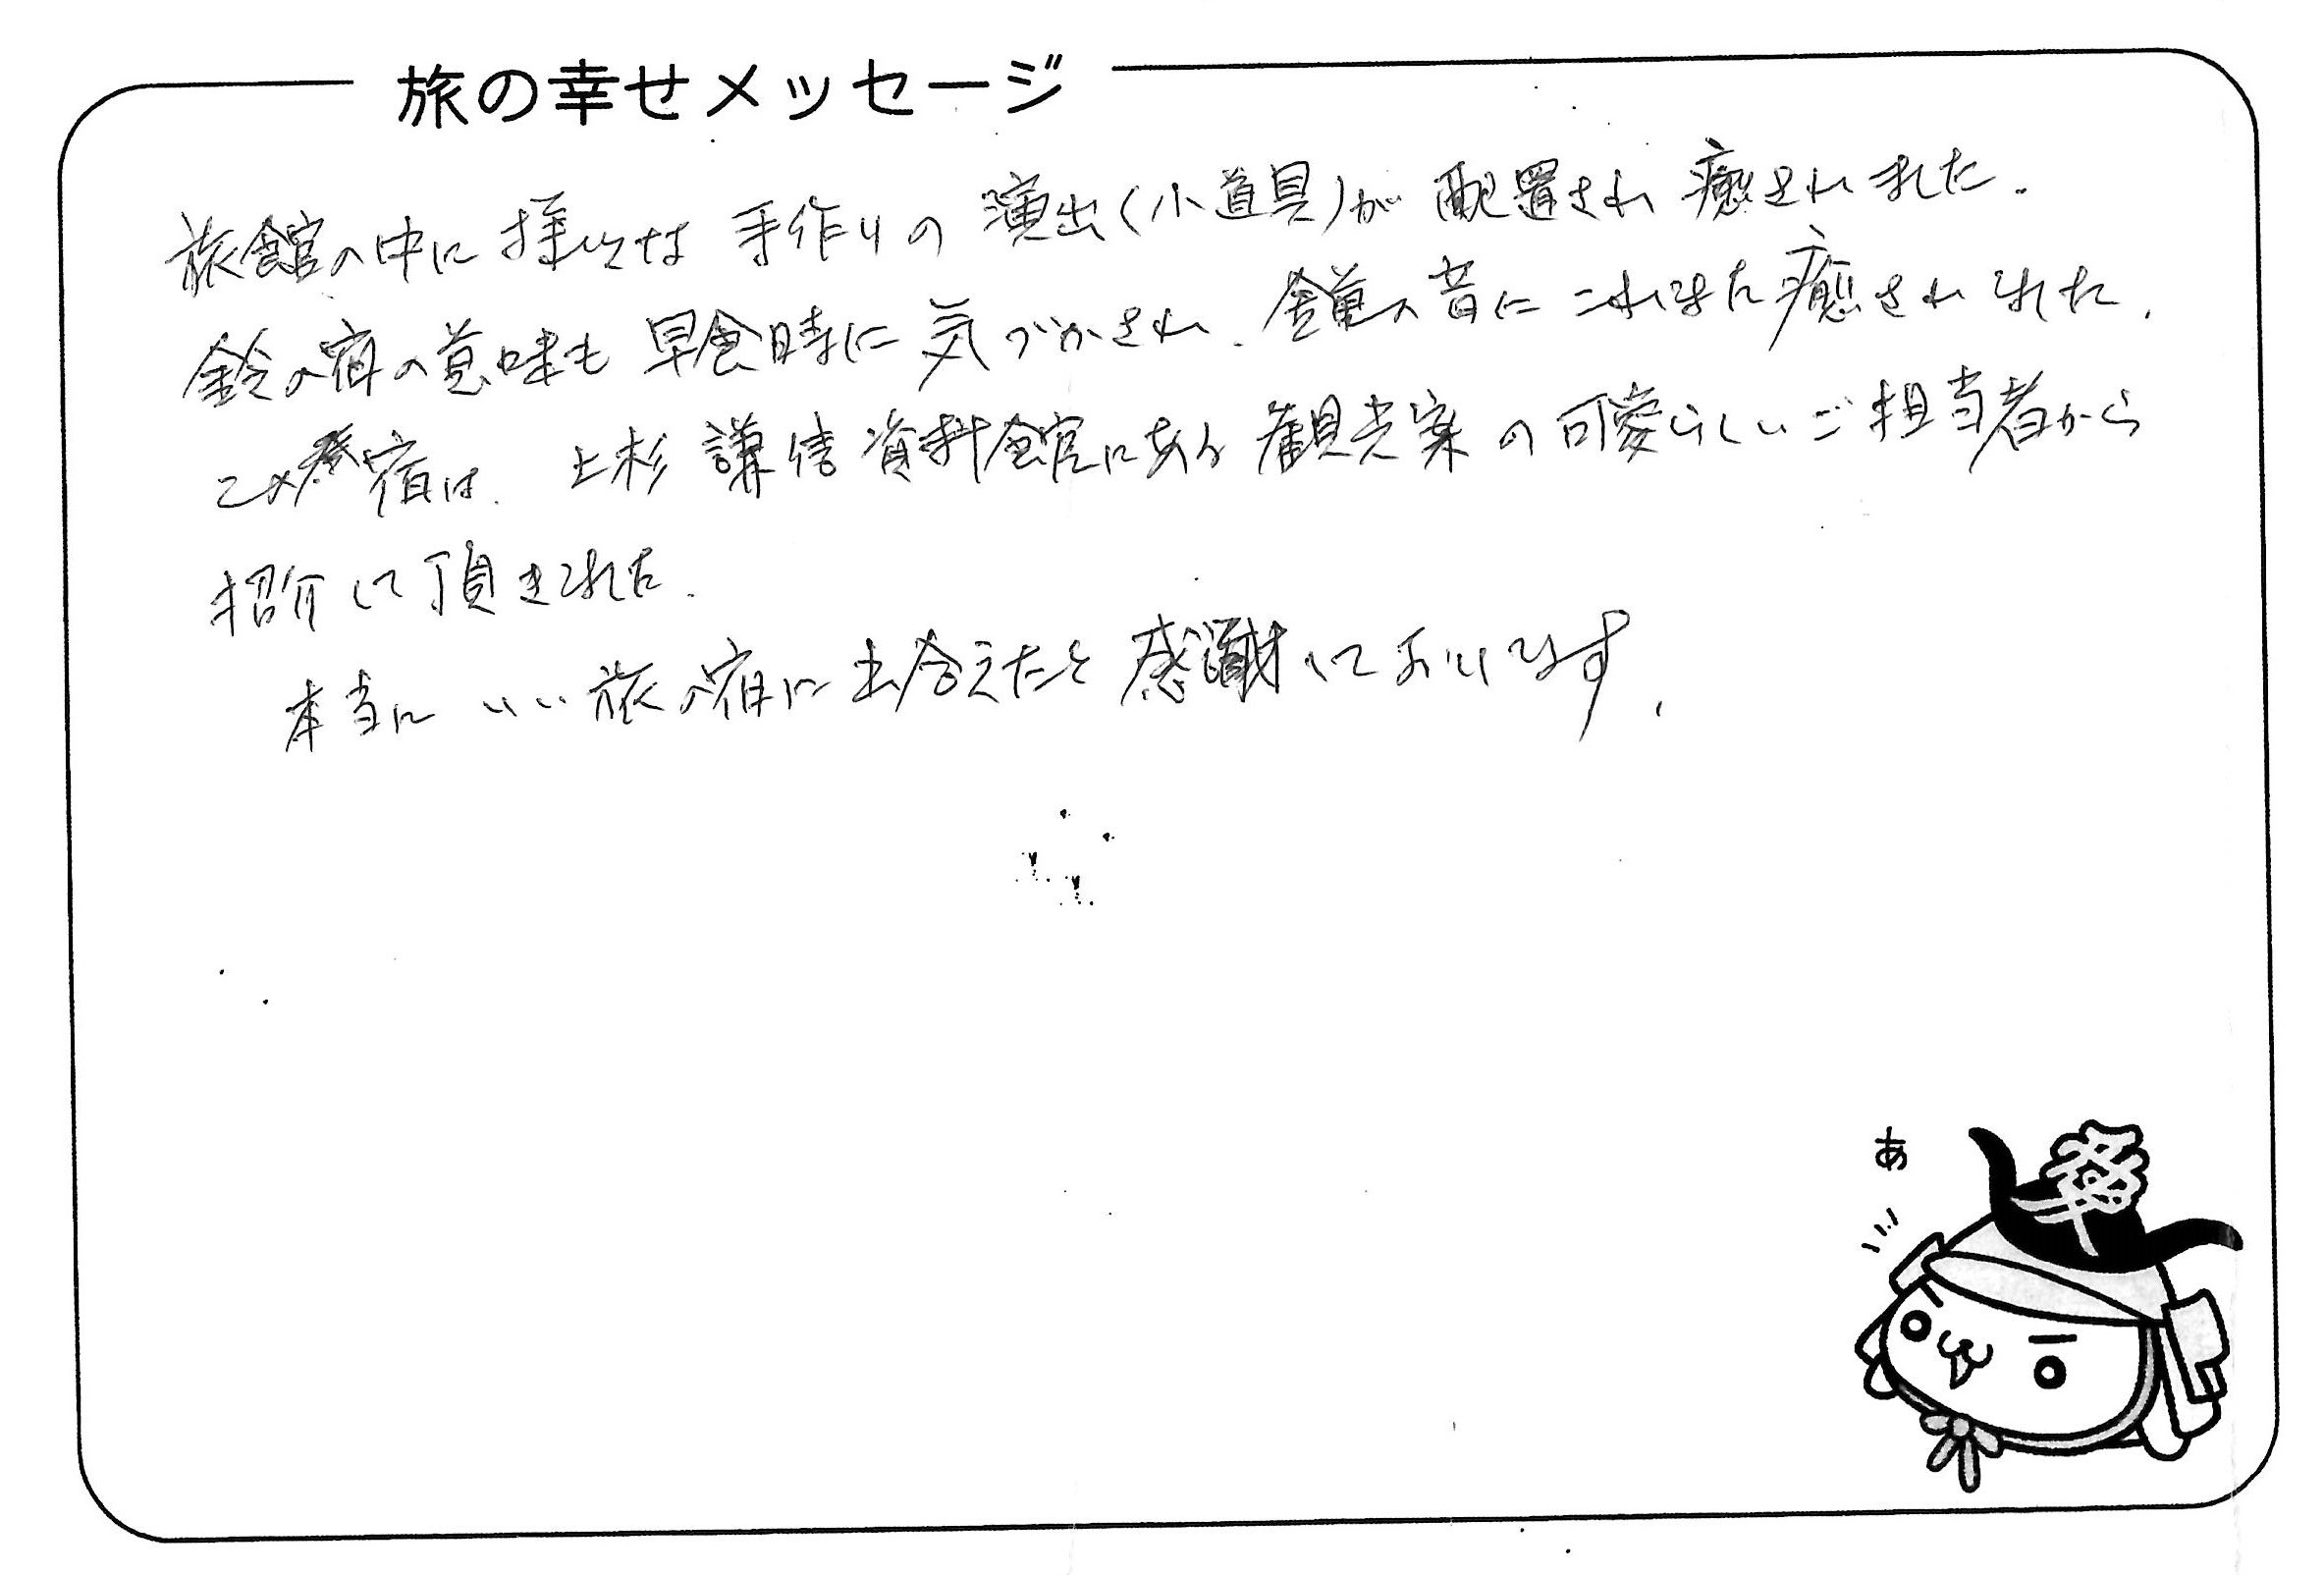 旅の幸せメッセージ
旅館の中に様々な手作りの演出(小道具)が配置され癒されました。
鈴の宿の意味も早食時に気づかされ、鐘の音にこれまた癒されました。
この宿は、上杉謙信資料館にある観光案の可愛らしいご担当者から
紹介して頂きました。
本当にいい旅の宿に出会えたと感謝しております。
あ
幸